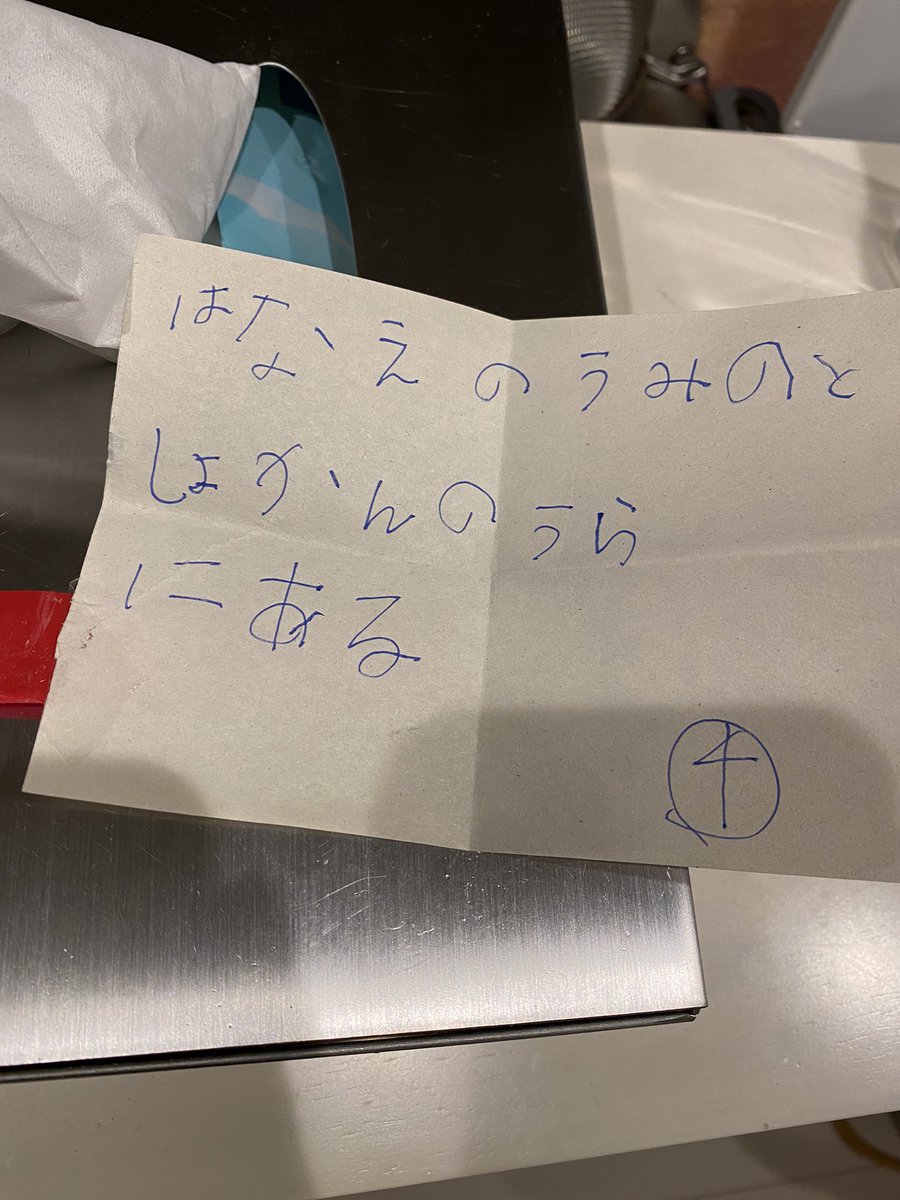 はなえのうみのと
しょかんのうら
にある
4